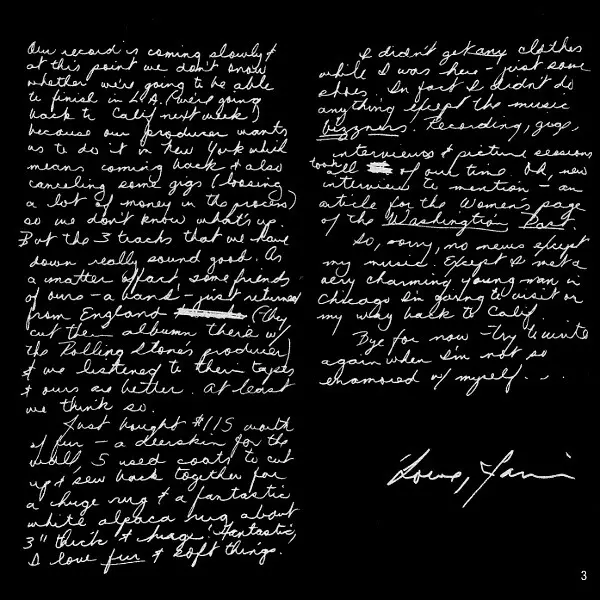 Our record is coming slowly &
at this point we don't know
whether we're going to be able
to finish in L.A. (we're going
back to Calif next week)
because our producer wants
us to do it in New York which
means coming back & also
canceling some gigs (loosing
a lot of money in the process)
so we don't know what's up.
But the 3 tracks that we have
down really sound good. As
a matter of fact, some friends
of ours – a band – just returned
from England (they
cut their albumn there w/
the Rolling Stone's producer)
& we listened to their tapes
& ours are better. At least
we think so.
Just bought $115 worth
of fur – a deerskin for the
wall, 5 used coats to cut
up & sew back together for
a huge rug & a fantastic
white alpaca rug about
3" thick & huage! Fantastic,
I love fur & soft things.
I didn't get any clothes
while I was here – just some
shoes. In fact I didn't do
anything except the music
bizzness. Recording, gigs,
interviews & picture sessions
took all of our time. Oh, new
interview to mention – an
article for the Women's page
of the Washington Post.
So, sorry, no news except
my music. Except I met a
very charming young man in
Chicago I'm going to visit on
my way back to Calif.
Bye for now – try to write
again when I'm not so
enamored w/ myself. . .
Love, Janis
3